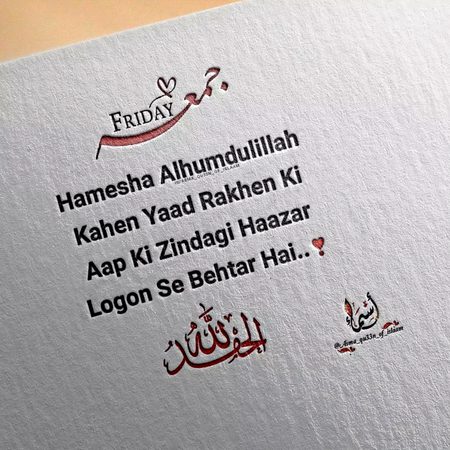 FRIDAY جمعہ
Hamesha Alhumdulillah
Kahen Yaad Rakhen Ki
Aap Ki Zindagi Haazar
Logon Se Behtar Hai..
الحمد لله
أسماء